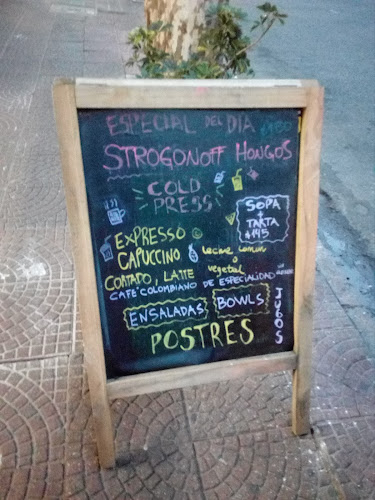 ESPECIAL DEL DIA
STROGONOFF HONGOS
COLD
PRESS
SOPA
+
TARTA
$195
EXPRESSO
CAPUCCINO
Leche comun
o
vegetal
CORTADO, LATTE
CAFÉ COLOMBIANO DE ESPECIALIDAD
ENSALADAS
BOWLS
JUGOS
POSTRES